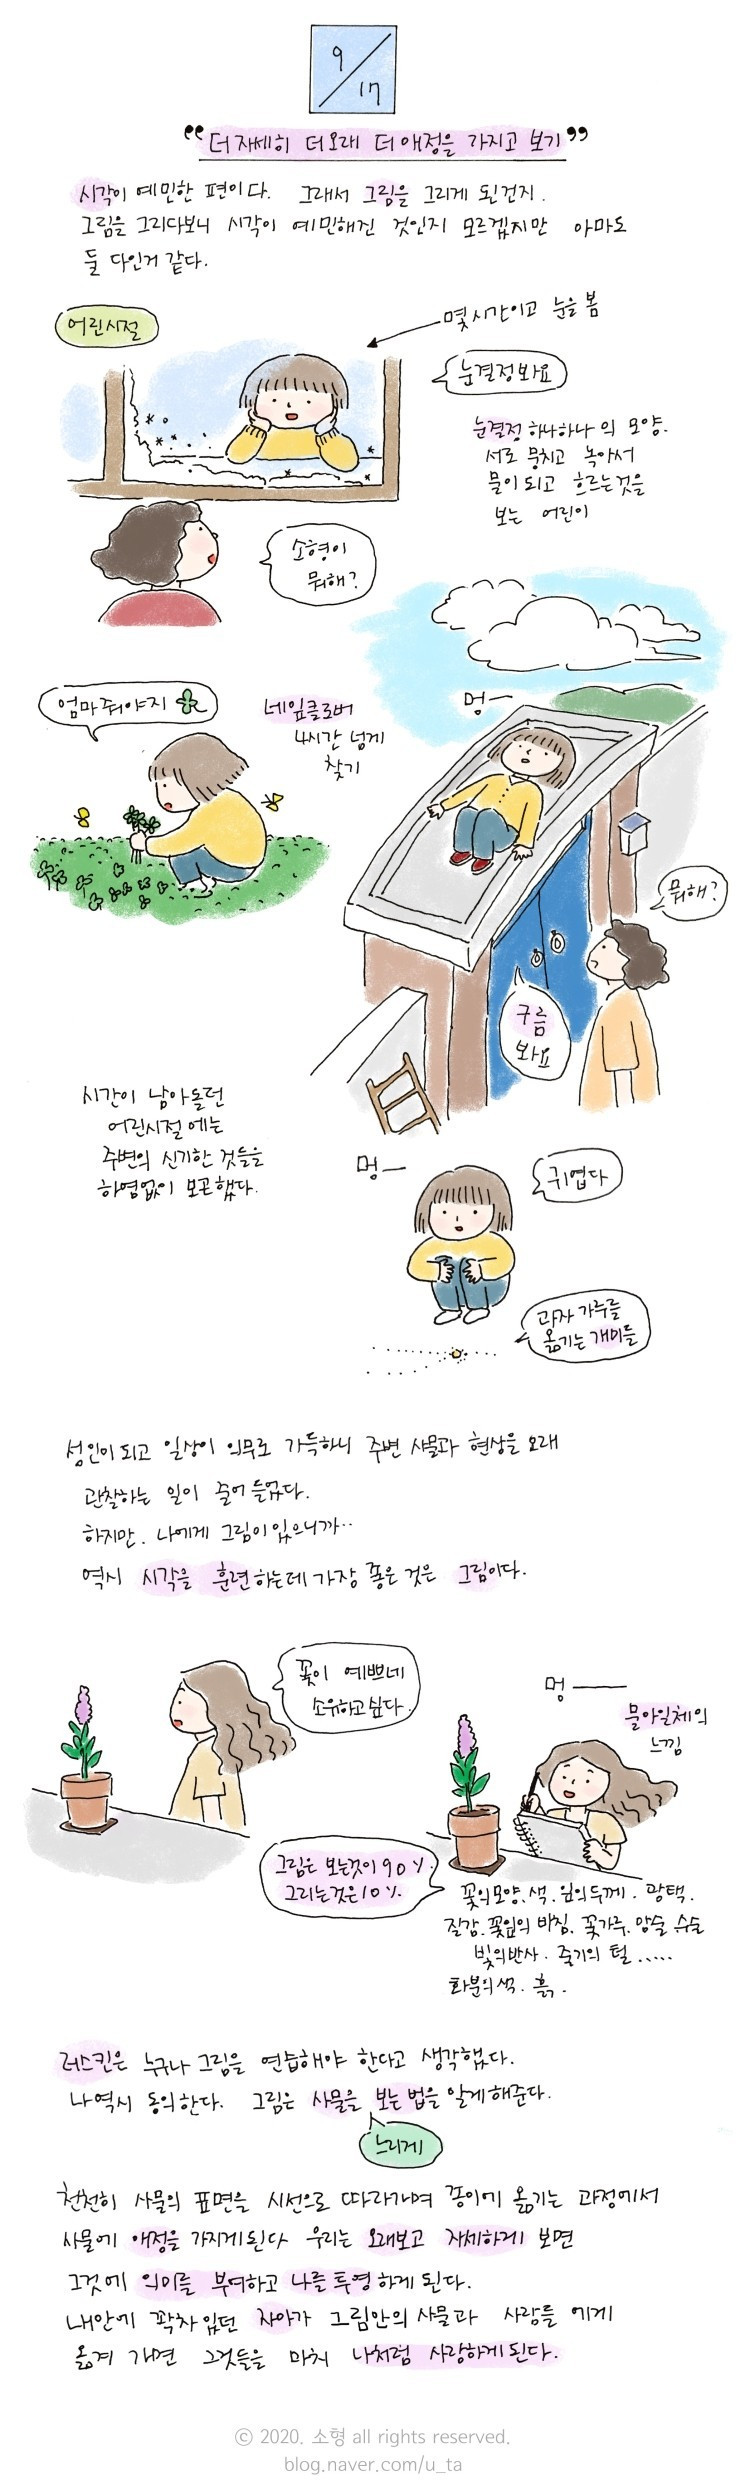 9/17
"더 자세히 더 오래 더 애정을 가지고 보기"
시각이 예민한 편이다. 그래서 그림을 그리게 된건지.
그림을 그리다보니 시각이 예민해진 것인지 모르겠지만 아마도
둘 다인거 같다.
어린시절
몇시간이고 눈을 봄
눈결정봐요
눈결정 하나하나의 모양.
서로 뭉치고 녹아서
물이 되고 흐르는것을
보는 어린이
소형이
뭐해?
엄마줘야지
네잎클로버
4시간 넘게
찾기
멍—
뭐해?
구름
봐요
시간이 남아돌던
어린시절에는
주변의 신기한 것들을
하염없이 보곤했다.
멍—
귀엽다
과자 가루를
옮기는 개미들
성인이 되고 일상이 의무로 가득하니 주변 사물과 현상을 오래
관찰하는 일이 줄어 들었다.
하지만. 나에게 그림이 있으니까..
역시 시각을 훈련하는데 가장 좋은 것은 그림이다.
꽃이 예쁘네
소유하고싶다.
멍——
물아일체의
느낌
그림은 보는것이 90%.
그리는것은 10%.
꽃의모양.색.잎의두께. 광택.
질감.꽃잎의 비침. 꽃가루. 암술 수술
빛의반사. 줄기의 털 .....
화분의색. 흙.
러스킨은 누구나 그림을 연습해야 한다고 생각했다.
나 역시 동의한다. 그림은 사물을 보는 법을 알게해준다.
느리게
천천히 사물의 표면을 시선으로 따라가며 종이에 옮기는 과정에서
사물에 애정을 가지게된다 우리는 오래보고 자세하게 보면
그것에 의미를 부여하고 나를 투영하게 된다.
내안에 꽉차있던 자아가 그림안의 사물과 사람들에게
옮겨 가면 그것들을 마치 나처럼 사랑하게된다.
© 2020. 소형 all rights reserved.
blog.naver.com/u_ta